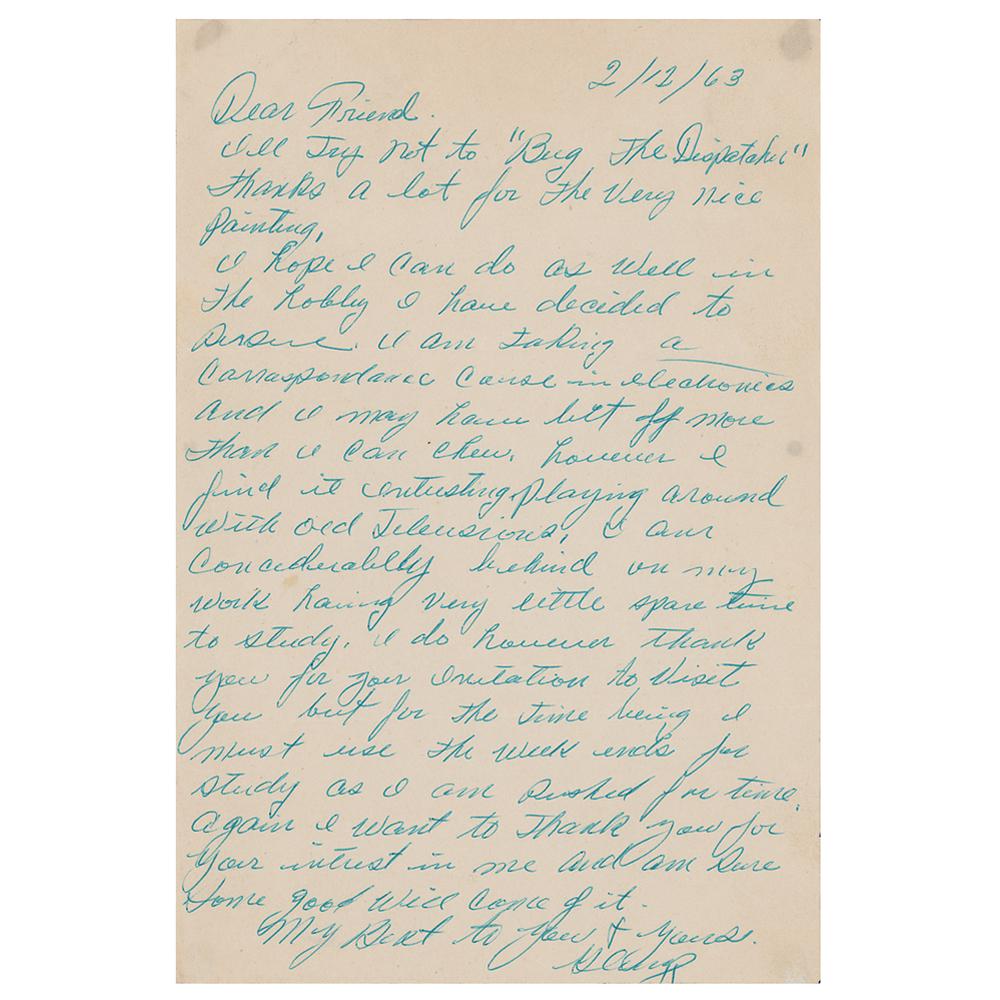 2/12/63
Dear Friend.
I'll Try not to "Bug The Dispatcher"
Thanks a lot for The Very nice
Painting,
I hope I Can do as Well in
The hobby I have decided to
Persue. I am Taking a
Carraspondance Course in electronics
And I may have bit off more
Than I Can Chew. however I
find it intresting playing around
With old Televisions, I am
Conciderablly behind on my
Work having Very little spare time
to study. I do however thank
you for your Invitation to Visit
you but for The Time being I
must use The Week ends for
study as I am Rushed for time.
Again I want to Thank you for
Your intrest in me and am Sure
Some good Will Come of it.
My Best to You & Yours.